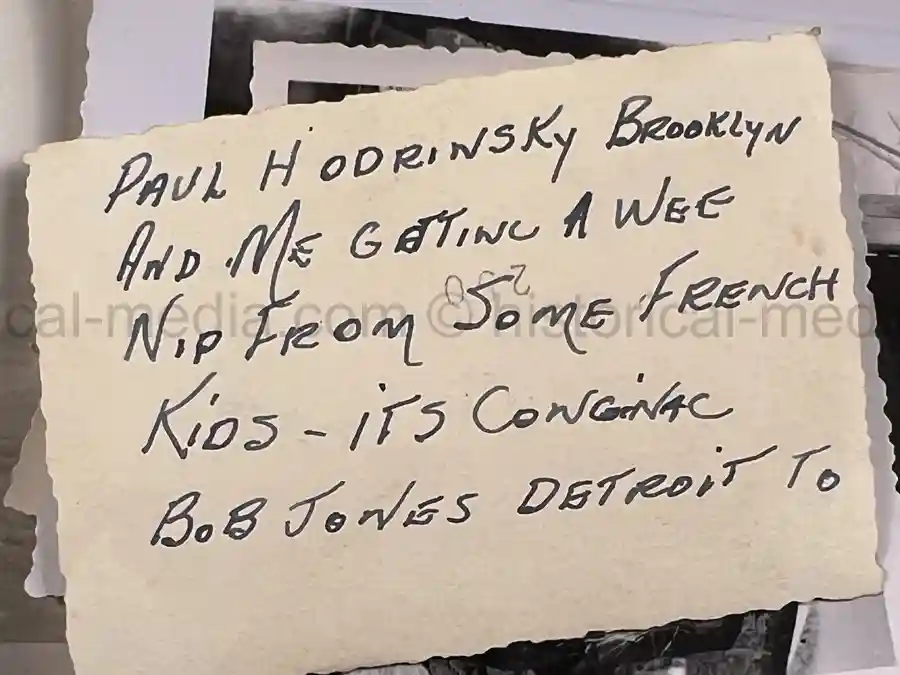 PAUL HODRINSKY BROOKLYN
AND ME GETTING A WEE
NIP FROM SOME FRENCH
KIDS - ITS CONGINAC
BOB JONES DETROIT TO
cal-media.com © historical-med